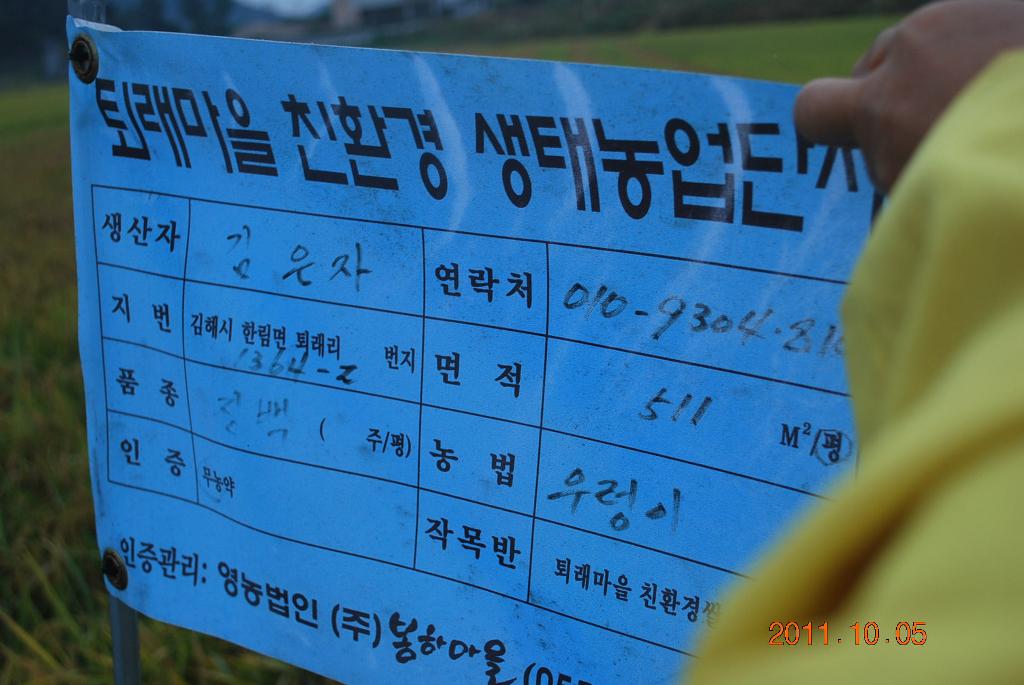 퇴래마을 친환경 생태농업단지
생산자 김은자 연락처 010-9304-81
지번 김해시 한림면 퇴래리 1364-2 번지 면적 511 M²/평
품종 ( 주/평) 농법 우렁이
인증 무농약 작목반 퇴래마을 친환경쌀
인증관리: 영농법인 (주)봉하마을 (055
2011.10.05